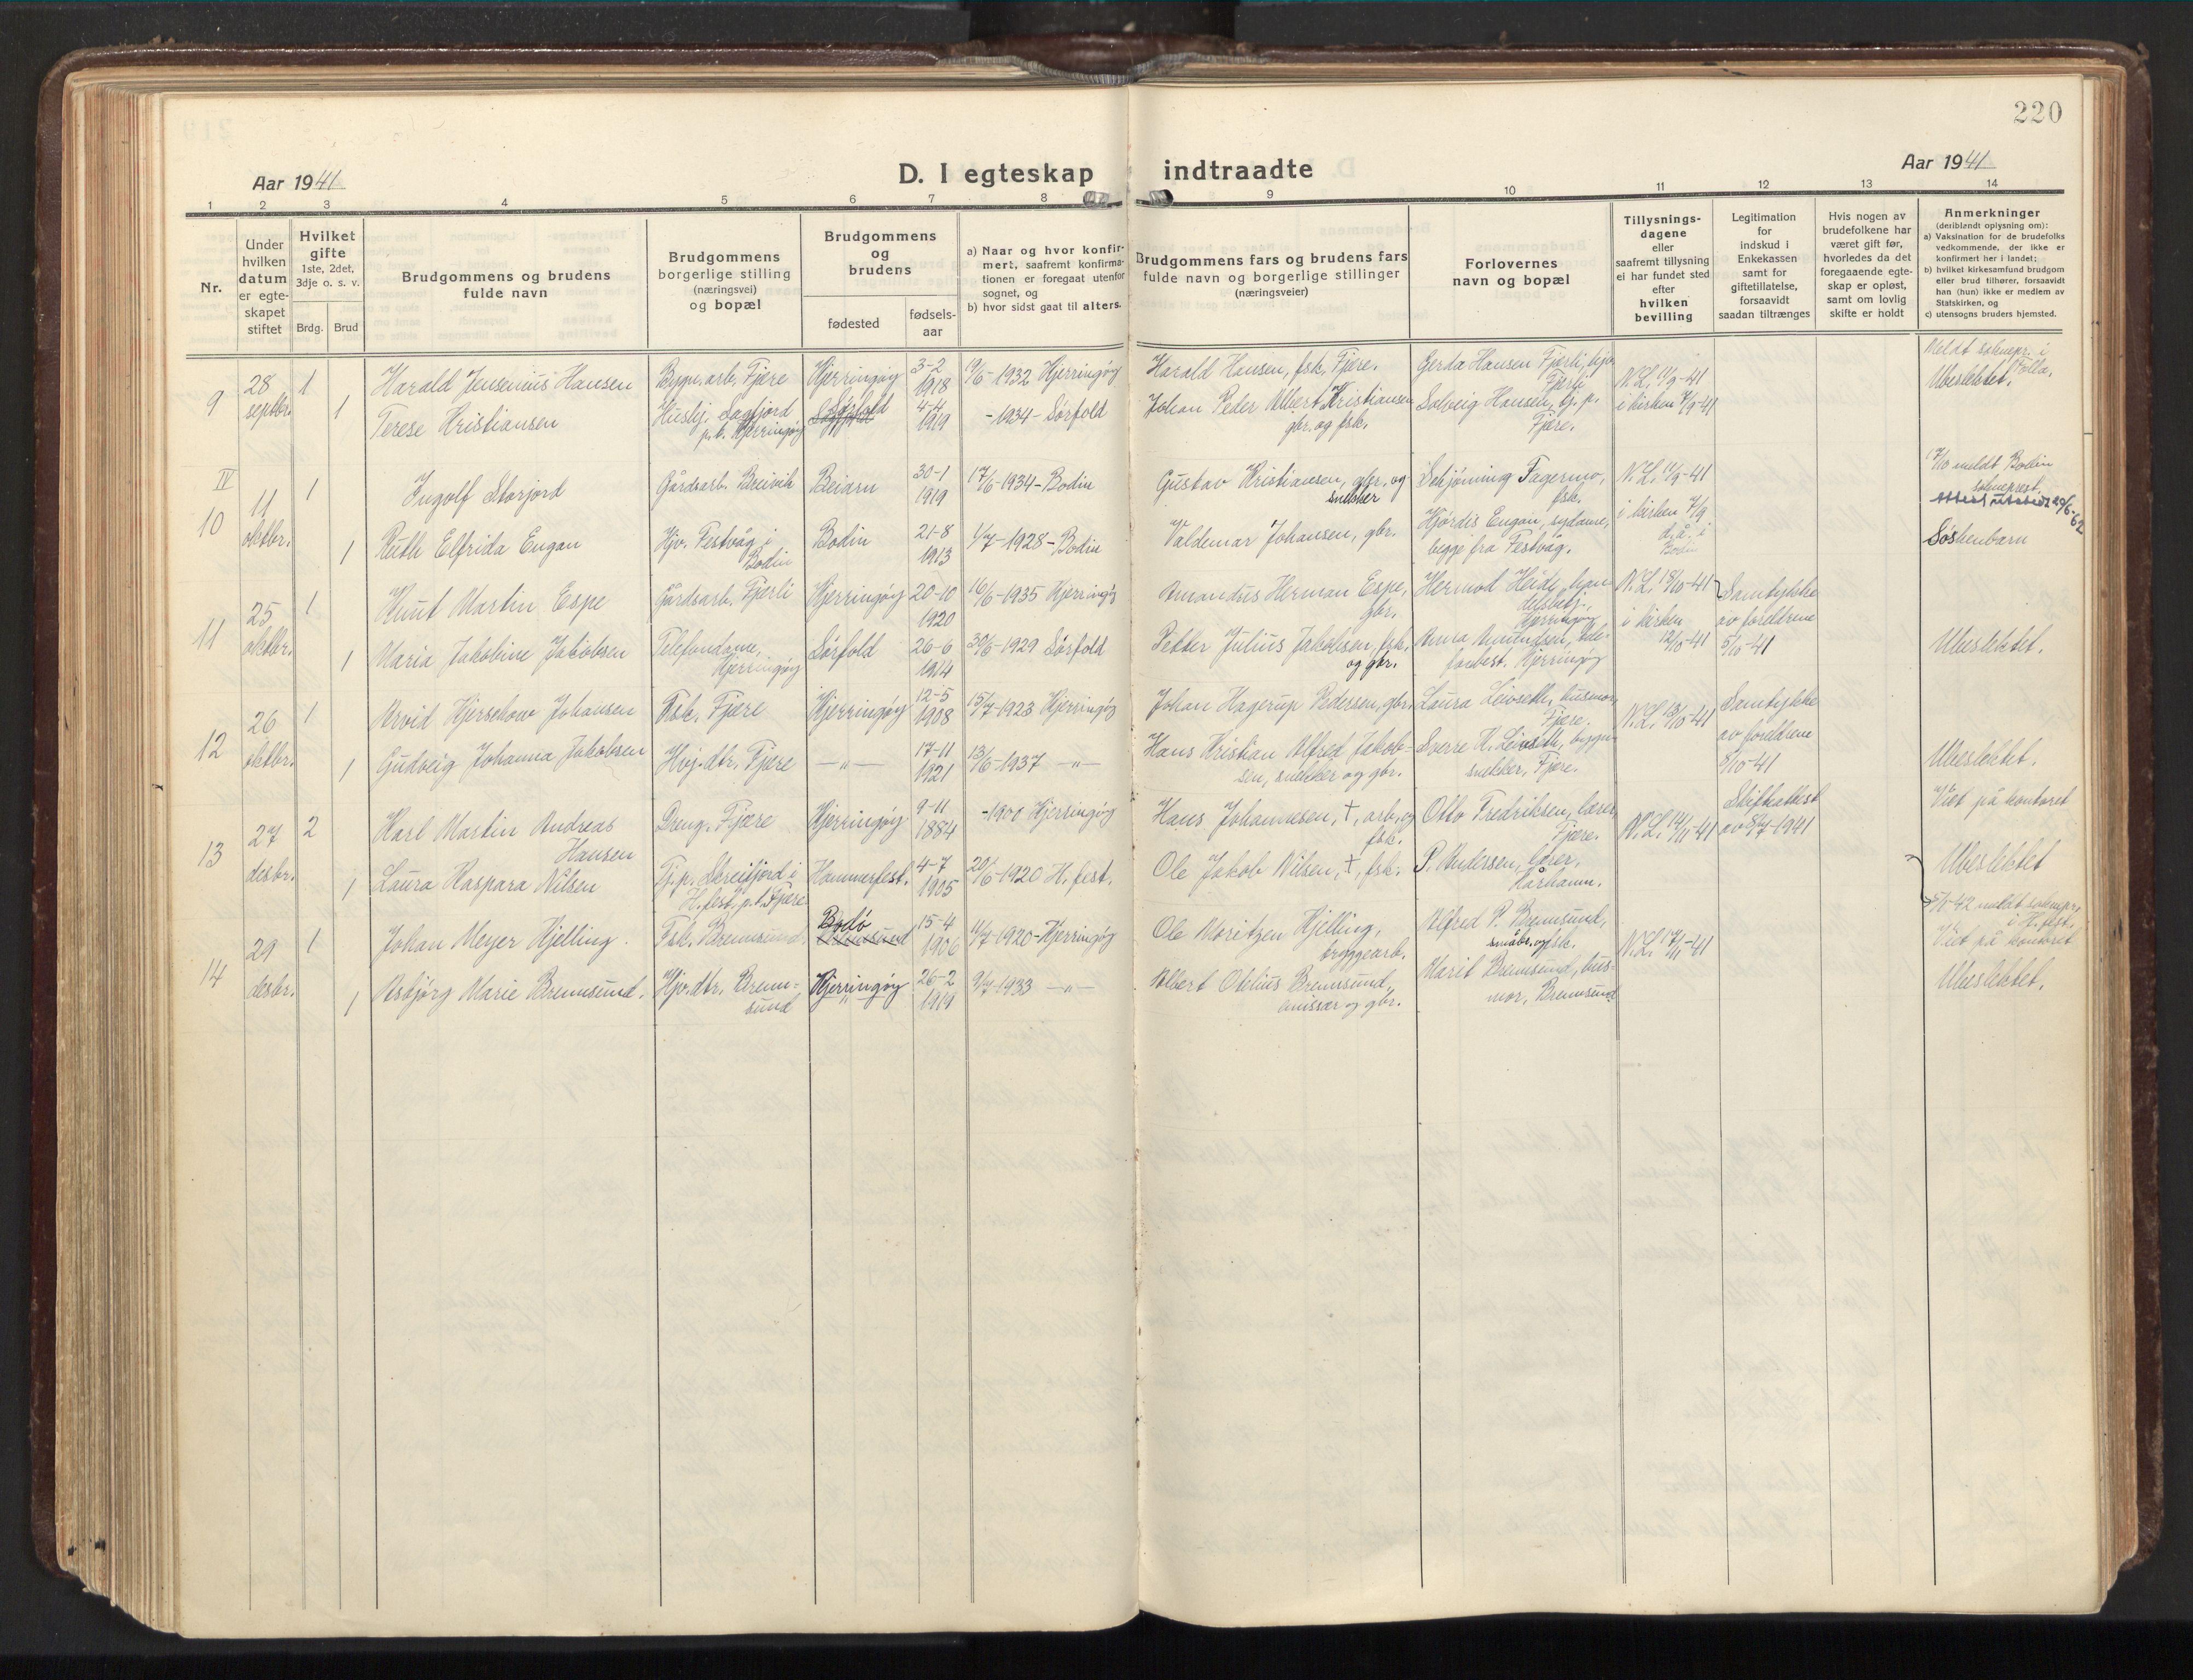 220
Aar 1941
D. I egteskap indtraadte
Aar 1941
1 2 3 4 5 6 7 8 9 10 11 12 13 14
Nr.
Under
hvilken
datum
er egte-
skapet
stiftet
Hvilket
gifte
1ste, 2det,
3dje o. s. v.
Brdg. Brud
Brudgommens og brudens
fulde navn
Brudgommens
borgerlige stilling
(næringsvei)
og bopæl
Brudgommens
og
brudens
fødested
fødsels-
aar
a) Naar og hvor konfir-
mert, saafremt konfirma-
tionen er foregaat utenfor
sognet, og
b) hvor sidst gaat til alters.
Brudgommens fars og brudens fars
fulde navn og borgerlige stillinger
(næringsveier)
Forlovernes
navn og bopæl
Tillysnings-
dagene
eller
saafremt tillysning
ei har fundet sted
efter
hvilken
bevilling
Legitimation
for
indskud i
Enkekassen
samt for
giftetillatelse,
forsaavidt
saadan tiltrænges
Hvis nogen av
brudefolkene har
været gift før,
hvorledes da det
foregaaende egte-
skap er opløst,
samt om lovlig
skifte er holdt
Anmerkninger
(deriblandt oplysning om):
a) Vaksination for de brudefolks
vedkommende, der ikke er
konfirmert her i landet;
b) hvilket kirkesamfund brudgom
eller brud tilhører, forsaavidt
han (hun) ikke er medlem av
Statskirken, og
c) utensogns bruders hjemsted.
9
28
septbr.
1
Harald Jensenius Hansen
Bygn.arb. Fjære
Kjerringøy
3-2
1918
19/6-1932 Kjerringøy
Harald Hansen, fsk. Fjære.
Gerda Hansen Fjærli, hjv.
Fjærli
N.L. 11/9-41
i kirken 7/9-41
Meldt soknepr. i
Folla.
Ubeslektet.
1
Terese Kristiansen
Hushj. Sagfjord
p.t. Kjerringøy
Sørfold
4-4
1919
-1934- Sørfold
Johan Peder Albert Kristiansen
gbr. og fsk.
Solveig Hansen, tj. p.
Fjære.
IV
10
11
oktbr.
1
Ingolf Storjord
Gårdsarb. Breivik
Beiarn
30-1
1919
17/6-1934- Bodin
Gustav Kristiansen, gbr. og
snekker
Schjøning Fagermo,
fsk.
N.L. 11/9-41
i kirken 7/9
d.å. i
Bodin
7/10 meldt Bodin
sokneprest.
Attest utstedt 20/6-62
Søskenbarn
1
Ruth Elfrida Engan
Hjv. Festvåg i
Bodin
Bodin
21-8
1913
1/7-1928- Bodin
Valdemar Johansen, gbr.
Hjørdis Engan, sydame,
begge fra Festvåg.
11
25
oktbr.
1
Knut Martin Espe
Gårdsarb. Fjærli
Kjerringøy
20-10
1920
16/6-1935 Kjerringøy
Amandus Herman Espe,
gbr.
Hermod Heide, han-
delsbetj.,
Kjerringøy
N.L. 18/10-41
i kirken
12/10-41
Samtykke
av foreldrene
5/10-41
1
Maria Jakobine Jakobsen
Telefondame,
Kjerringøy
Sørfold
26-6
1914
30/6-1929 Sørfold
Petter Julius Jakobsen, fsk.
og gbr.
Anna Amundsen, tele-
fonbest. Kjerringøy
Ubeslektet.
12
26
oktbr.
1
Arvid Kjerschow Johansen
Fsk. Fjære
Kjerringøy
12-5
1908
15/7-1923 Kjerringøy
Johan Hagerup Pedersen, gbr.
Laura Leivseth, husmor,
Fjære.
N.L. 13/10-41
Samtykke
av foreldrene
5/10-41
1
Gudveig Johanna Jakobsen
Hvj.dtr. Fjære
—„—
17-11
1921
13/6-1937 —„—
Hans Kristian Alfred Jakob-
sen, snekker og gbr.
Sverre H. Leivseth, bygn-
snekker, Fjære.
Ubeslektet.
13
27
desbr.
2
Karl Martin Andreas
Hansen
Dreng. Fjære
Kjerringøy
9-11
1884
-1900 Kjerringøy
Hans Johannesen, †, arb. og
fsk.
Otto Fredriksen, lærer,
Fjære.
N.L. 14/11-41
Skifteattest
av 8/7-1941
Viet på kontoret
1
Laura Kaspara Nilsen
Tj.p. Skreifjord i
H.fest p.t. Fjære
Hammerfest.
4-7
1905
20/6-1920 H.fest.
Ole Jakob Nilsen, †, fsk.
P. Andersen, lærer,
Kårhamn.
Ubeslektet
5/1-42 meldt sokepr.
i H.fest.
14
29
desbr.
1
Johan Meyer Kjelling.
Fsk. Bremsund.
Bodø
15-4
1906
11/7-1920- Kjerringøy
Ole Moritzen Kjelling,
bryggearb.
Alfred P. Bremsund,
småbr. og fsk.
N.L. 19/11-41
Viet på kontoret
1
Asbjørg Marie Bremsund.
Hjv.dtr. Brem-
sund
Kjerringøy
26-2
1919
9/7-1933 —„—
Albert Otelius Bremsund,
emissær og gbr.
Marit Bremsund, hus-
mor, Bremsund
Ubeslektet.